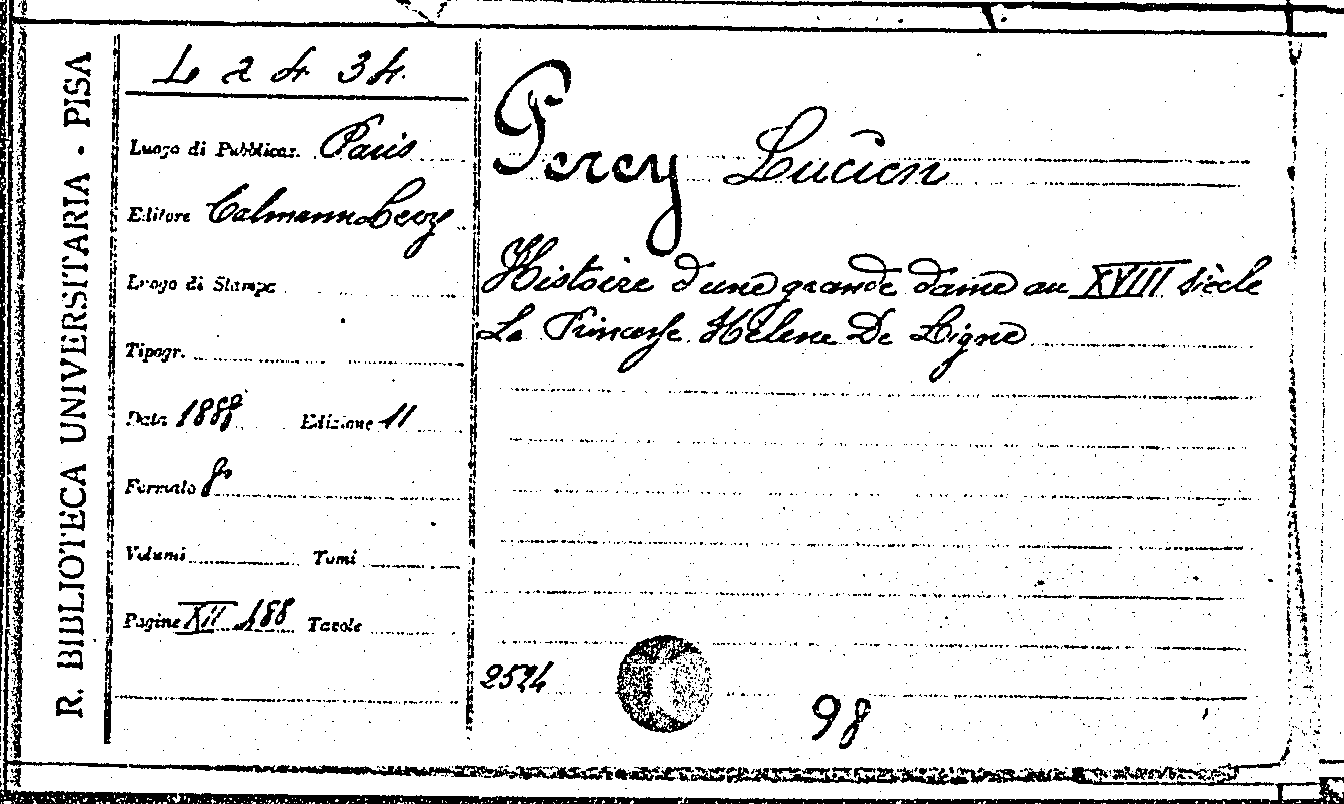 R. BIBLIOTECA UNIVERSITARIA · PISA
L 2 4 34.
Luogo di Pubblicaz. Paris
Editore Calmann Levy
Luogo di Stampa
Tipogr.
Data 1888 Edizione 11
Formato 8°
Volumi Tomi
Pagine XII 488 Tavole
Percy Lucien
Histoire d'une grande dame au XVIII siècle
La Princesse Hélène De Ligne
2524
98